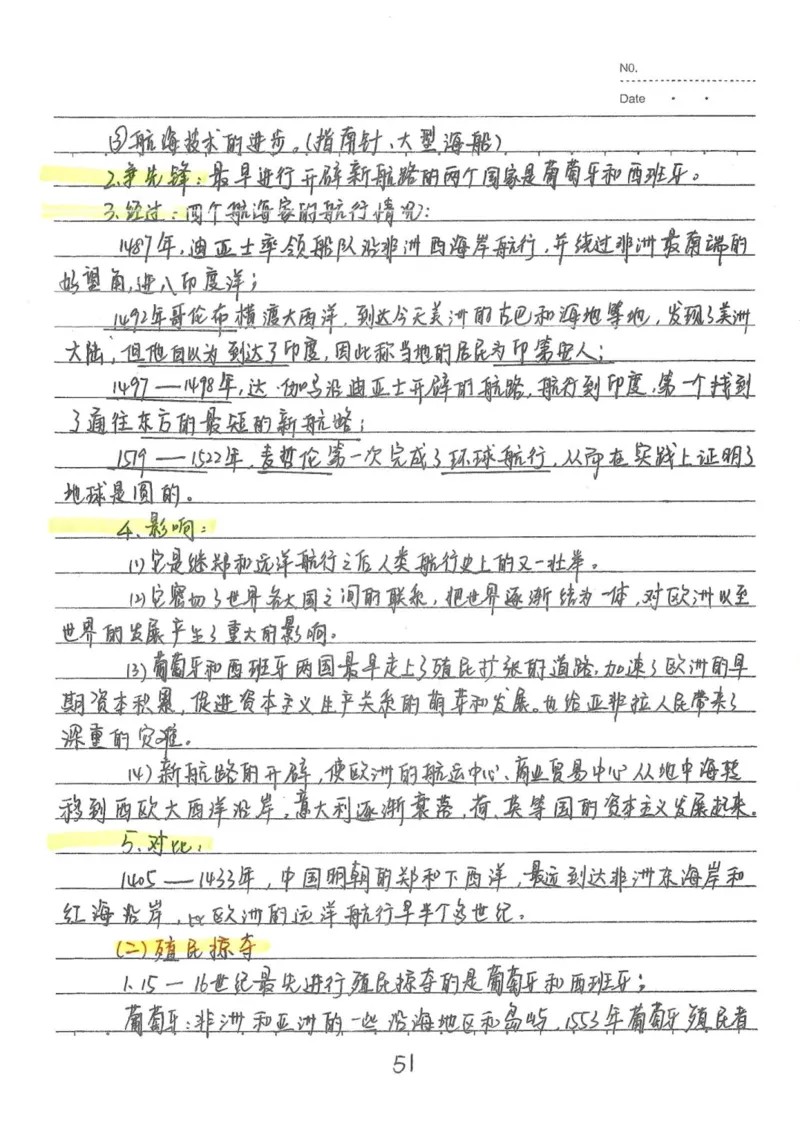 NO.
Date
③航海技术的进步。(指南针、大型海船)
2.争先锋：最早进行开辟新航路的两个国家是葡萄牙和西班牙。
3.经过：四个航海家的航行情况：
1487年,迪亚士率领船队沿非洲西海岸航行,并绕过非洲最南端的
好望角,进入印度洋；
1492年哥伦布横渡大西洋,到达今天美洲的古巴和海地等地,发现了美洲
大陆,但他自以为到达了印度,因此称当地的居民为印第安人；
1497—1498年,达·伽马沿迪亚士开辟的航路,航行到印度,第一个找到
了通往东方的最短的新航路；
1519—1522年,麦哲伦第一次完成了环球航行,从而在实践上证明了
地球是圆的。
4、影响：
(1)它是继郑和远洋航行之后人类航行史上的又一壮举。
(2)它密切了世界各大国之间的联系,把世界逐渐结为一体,对欧洲以至
世界的发展产生了重大的影响。
(3)葡萄牙和西班牙两国最早走上了殖民扩张的道路,加速了欧洲的早
期资本积累,促进资本主义生产关系的萌芽和发展。也给亚非拉人民带来了
深重的灾难。
(4)新航路的开辟,使欧洲的航运中心、商业贸易中心从地中海转
移到西欧大西洋沿岸,意大利逐渐衰落,荷、英等国的资本主义发展起来。
5、对比：
1405—1433年,中国明朝的郑和下西洋,最远到达非洲东海岸和
红海沿岸,比欧洲的远洋航行早半个多世纪。
(二)殖民掠夺
1、15—16世纪最先进行殖民掠夺的是葡萄牙和西班牙；
葡萄牙：非洲和亚洲的一些沿海地区和岛屿,1553年葡萄牙殖民者
51